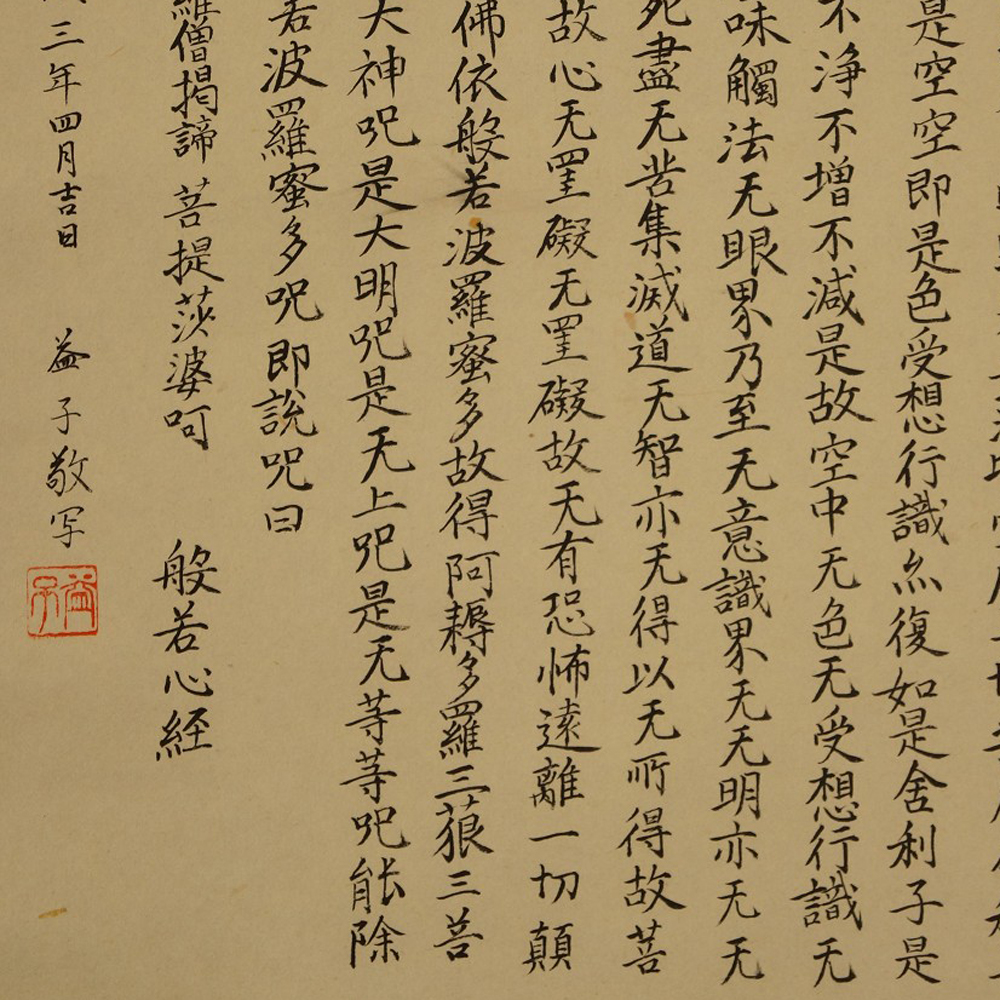 是空空即是色受想行識亦復如是舍利子是
不浄不增不減是故空中无色无受想行識无
味觸法无眼界乃至无意識界无无明亦无无
死盡无苦集滅道无智亦无得以无所得故菩
故心无罣礙无罣礙故无有恐怖遠離一切顛
佛依般若波羅蜜多故得阿耨多羅三藐三菩
大神呪是大明呪是无上呪是无等等呪能除
若波羅蜜多呪即説呪曰
羅僧掲諦 菩提莎婆呵 般若心経
三年四月吉日 益子敬写
益子